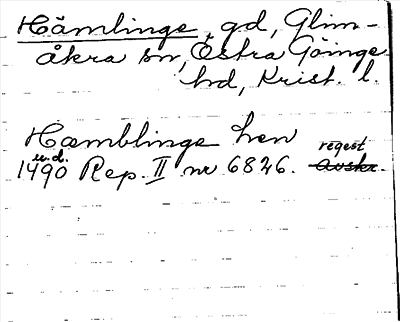 Hämlinge, gd, Glim-
åkra sn, Östra Göinge
hd, Krist. l.
Hæmblinge hen
regest
u.d.
1490 Rep. II nr 6826. avskr.